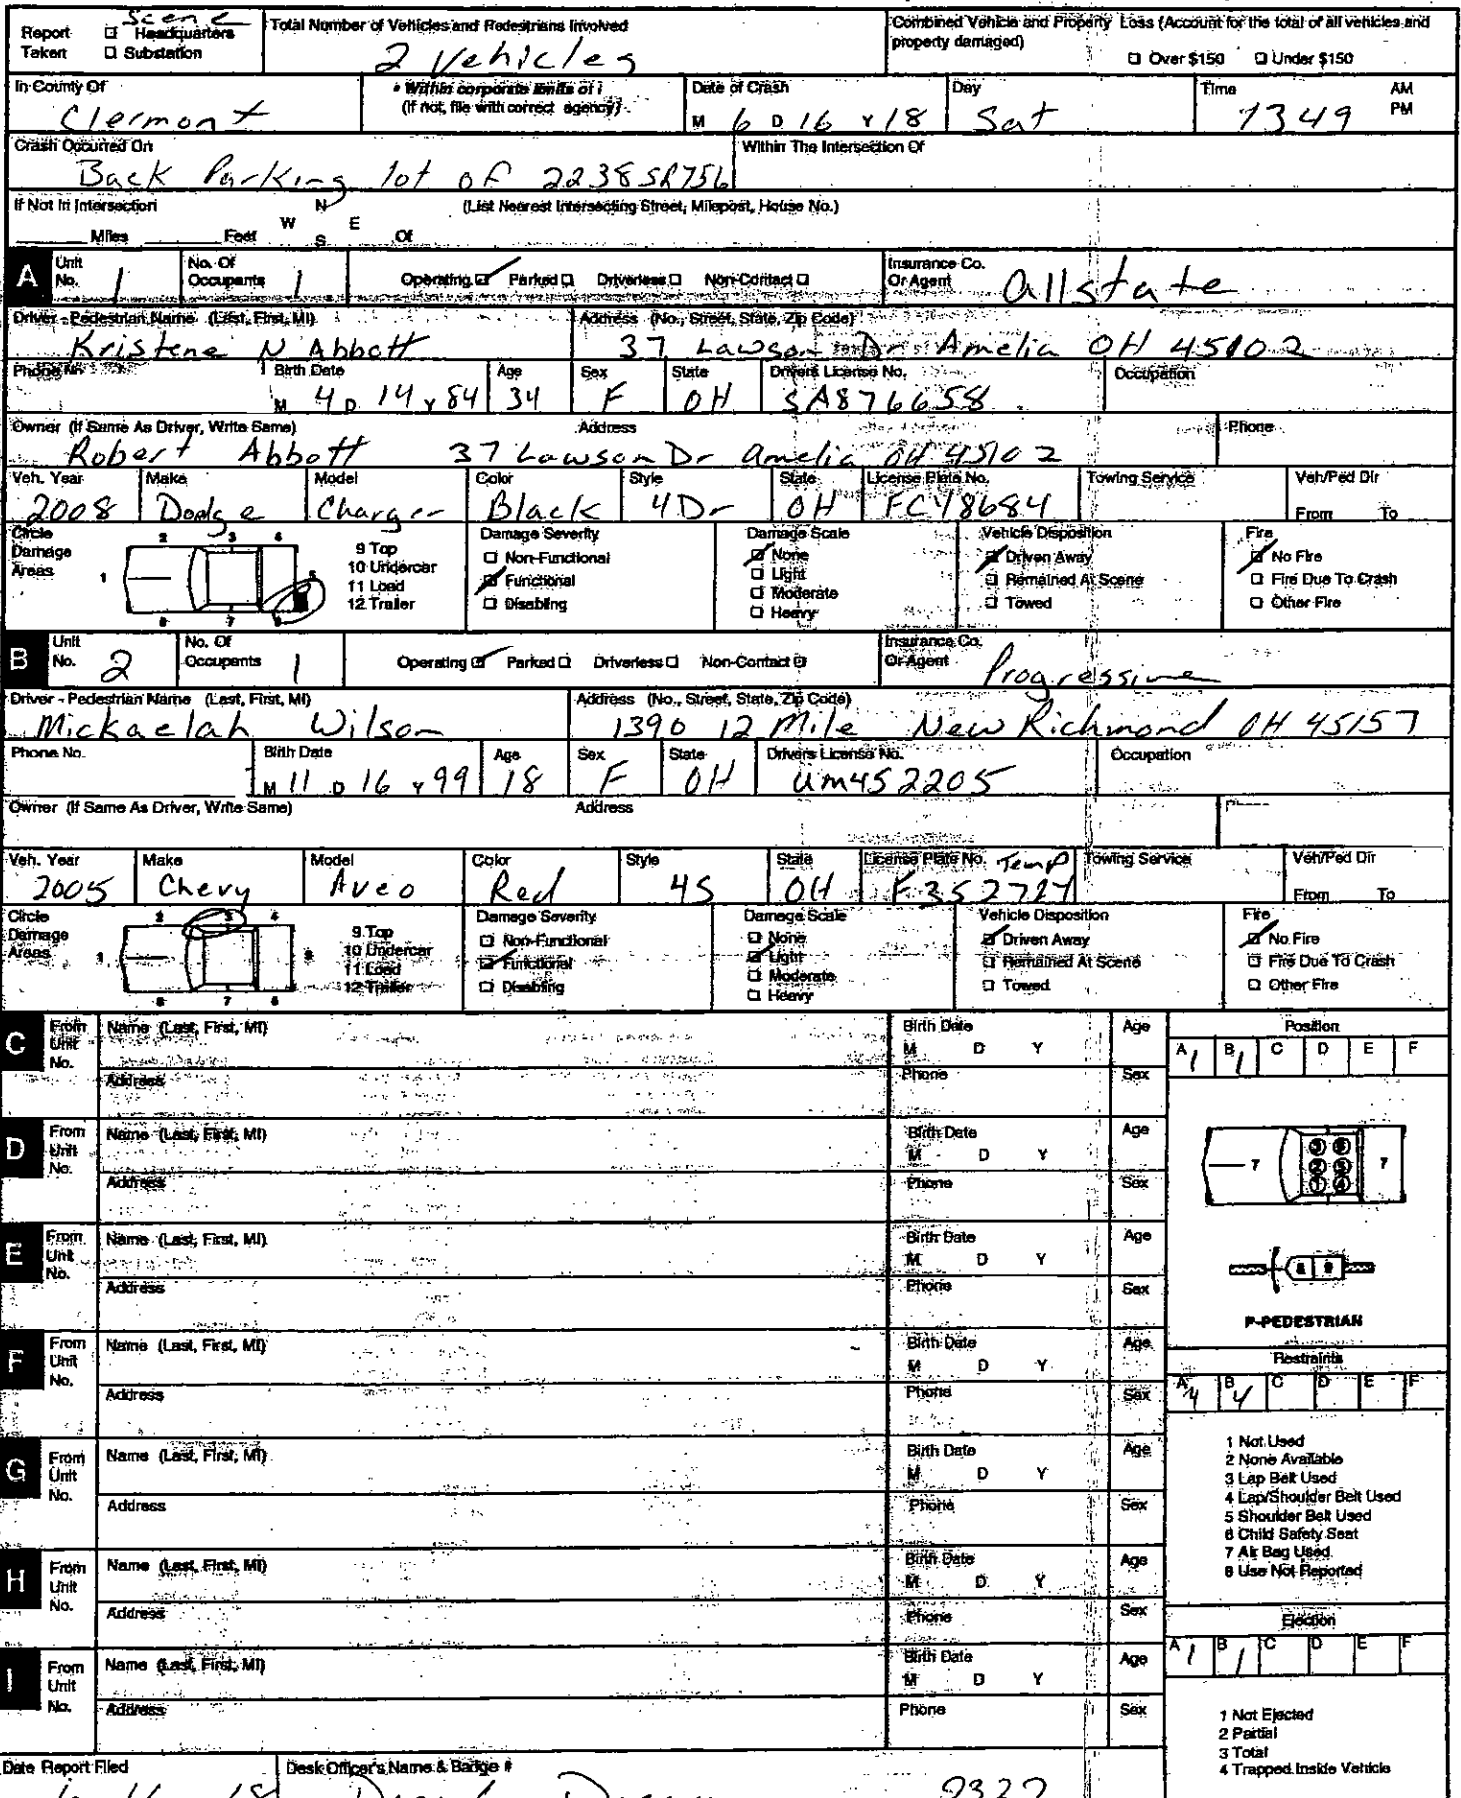 Scene
Report Taken ☐ Headquarters ☐ Substation
Total Number of Vehicles and Pedestrians Involved
2 Vehicles
Combined Vehicle and Property Loss (Account for the total of all vehicles and property damaged)
☐ Over $150 ☐ Under $150
In County Of Clermont
• Within corporate limits of
(If not, file with correct agency)
Date of Crash M 6 D 16 Y 18
Day Sat
Time 1349 AM PM
Crash Occurred On Back Parking lot of 2238 SR756
Within The Intersection Of
If Not In Intersection
N W E S
(List Nearest Intersecting Street, Milepost, House No.)
Miles Feet Of
A Unit No. 1 No. Of Occupants 1 Operating ☑ Parked ☐ Driverless ☐ Non-Contact ☐ Insurance Co. Or Agent Allstate
Driver - Pedestrian Name (Last, First, MI) Address (No., Street, State, Zip Code)
Kristene N Abbott 37 Lawson Dr Amelia OH 45102
Phone No. Birth Date Age Sex State Drivers License No. Occupation
M 4 D 14 Y 84 34 F OH SA876658
Owner (If Same As Driver, Write Same) Address Phone
Robert Abbott 37 Lawson Dr Amelia OH 45102
Veh. Year Make Model Color Style State License Plate No. Towing Service Veh/Ped Dir
2008 Dodge Charger Black 4Dr OH FCY8684 From To
Circle Damage Areas
1 2 3 4 5 6 7 8
9 Top
10 Undercar
11 Load
12 Trailer
Damage Severity
☐ Non-Functional
☑ Functional
☐ Disabling
Damage Scale
☑ None
☐ Light
☐ Moderate
☐ Heavy
Vehicle Disposition
☑ Driven Away
☐ Remained At Scene
☐ Towed
Fire
☑ No Fire
☐ Fire Due To Crash
☐ Other Fire
B Unit No. 2 No. Of Occupants 1 Operating ☑ Parked ☐ Driverless ☐ Non-Contact ☐ Insurance Co. Or Agent Progressive
Driver - Pedestrian Name (Last, First, MI) Address (No., Street, State, Zip Code)
Mickaelah Wilson 1390 12 Mile New Richmond OH 45157
Phone No. Birth Date Age Sex State Drivers License No. Occupation
M 11 D 16 Y 99 18 F OH UM452205
Owner (If Same As Driver, Write Same) Address Phone
Veh. Year Make Model Color Style State License Plate No. Temp Towing Service Veh/Ped Dir
2005 Chevy Aveo Red 4S OH From To
Circle Damage Areas
1 2 3 4 5 6 7 8
9 Top
10 Undercar
11 Load
12 Trailer
Damage Severity
☐ Non-Functional
☑ Functional
☐ Disabling
Damage Scale
☐ None
☑ Light
☐ Moderate
☐ Heavy
Vehicle Disposition
☑ Driven Away
☐ Remained At Scene
☐ Towed
Fire
☑ No Fire
☐ Fire Due To Crash
☐ Other Fire
C From Unit No. Name (Last, First, MI) Birth Date M D Y Age
Address Phone Sex
D From Unit No. Name (Last, First, MI) Birth Date M D Y Age
Address Phone Sex
E From Unit No. Name (Last, First, MI) Birth Date M D Y Age
Address Phone Sex
F From Unit No. Name (Last, First, MI) Birth Date M D Y Age
Address Phone Sex
G From Unit No. Name (Last, First, MI) Birth Date M D Y Age
Address Phone Sex
H From Unit No. Name (Last, First, MI) Birth Date M D Y Age
Address Phone Sex
I From Unit No. Name (Last, First, MI) Birth Date M D Y Age
Address Phone Sex
Position
A 1 B 1 C D E F
7 3 6 2 5 1 4 7
8 9
P-PEDESTRIAN
Restraints
A 4 B 4 C D E F
1 Not Used
2 None Available
3 Lap Belt Used
4 Lap/Shoulder Belt Used
5 Shoulder Belt Used
6 Child Safety Seat
7 Air Bag Used
8 Use Not Reported
Ejection
A 1 B 1 C D E F
1 Not Ejected
2 Partial
3 Total
4 Trapped Inside Vehicle
Date Report Filed
Desk Officer's Name & Badge #